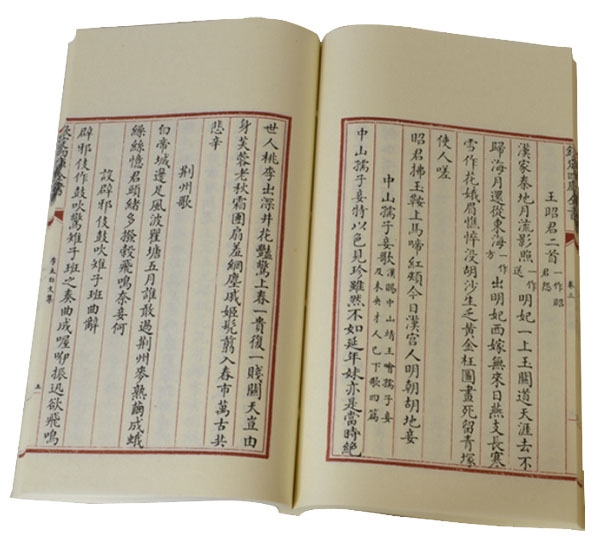 欽定四庫全書
卷三
王昭君二首一作昭君怨
漢家秦地月流影照一作送明妃一上玉關道天涯去不
歸漢月還從東海一作方出明妃西嫁無來日燕支長寒
雪作花娥眉憔悴沒胡沙生乏黃金枉圖畫死留青塚
使人嗟
昭君拂玉鞍上馬啼紅頰今日漢宮人明朝胡地妾
中山孺子妾歌漢賜中山靖王噲孺子妾及未央才人已下歌四篇
中山孺子妾特以色見珍雖然不如延年妹亦是當時絕
世人桃李出深井花豔驚上春一貴復一賤關天豈由
身芙蓉老秋霜團扇羞網塵戚姬髡翦入春市萬古共
悲辛
荆州歌
白帝城邊足風波瞿塘五月誰敢過荆州麥熟繭成蛾
繰絲憶君頭緒多撥穀飛鳴奈妾何
設辟邪伎鼓吹雉子班曲辭
辟邪伎作鼓吹驚雉子班之奏曲成喔咿振迅欲飛鳴
李太白文集
五